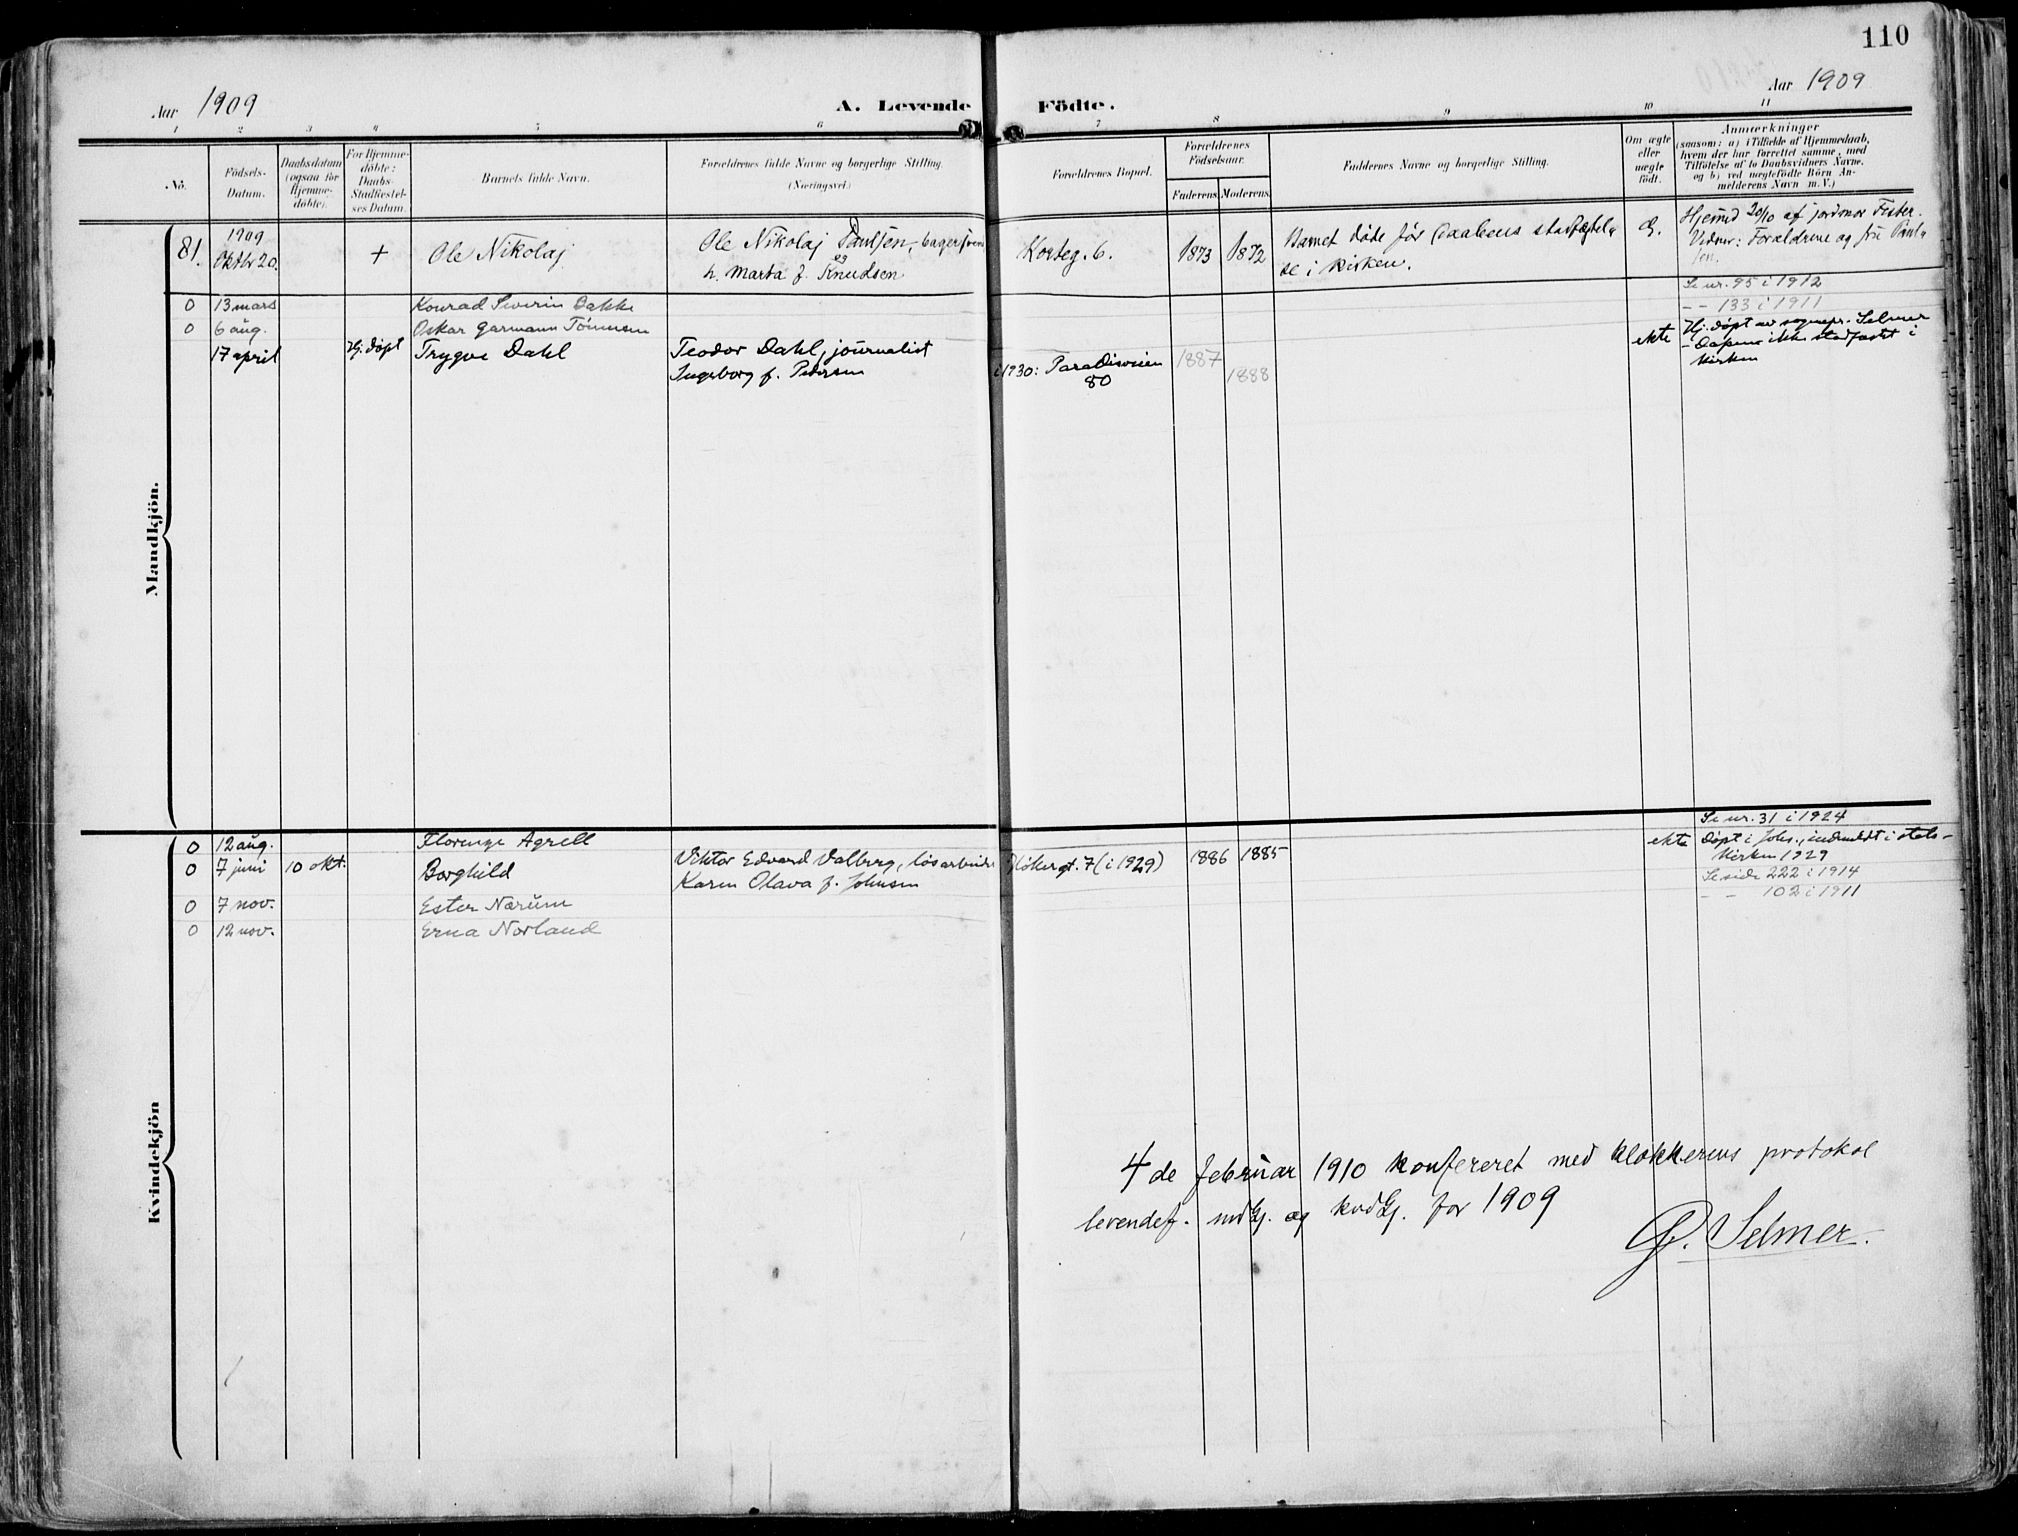 110
Aar 1909
A. Levende Födte.
Aar 1909
1 2 3 4 5 6 7 8 9 10 11
No.
Födsels-
Datum.
Daabsdatum
(ogsaa for
Hjemme-
döbte).
For Hjemme-
döbte:
Daabs-
Stadfæstel-
ses Datum.
Barnets fulde Navn.
Forældrenes fulde Navne og borgerlige Stilling.
(Næringsvei.)
Forældrenes Bopæl.
Forældrenes
Födselsaar.
Faderens. Moderens.
Faddernes Navne og borgerlige Stilling.
Om ægte
eller
uægte
født.
Anmærkninger
(saasom: a) i Tilfælde af Hjemmedaab,
hvem der har forrettet samme, med
Tilföielse af to Daabsvidners Navne.
og b) ved uægtefödte Börn An-
melderens Navn m. V.)
Mandkjön.
81.
1909
Oktbr 20.
+
Ole Nikolaj
Ole Nikolaj Paulsen, bagersvend
h. Marta f. Knudsen
Korteg. 6.
1873 1872
Barnet døde før daabens stadfæstel-
se i kirken.
Æ.
Hjemd 20/10 af jordmor Fister.
Vidner: Forældrene og fru Paul-
sen.
0 13 mars Konrad Severin Bakke Se nr. 95 i 1912
0 6 aug. Oskar Garmann Tönnesen - - 133 i 1911
17 april Hj. döpt Trygve Dahl
Teodor Dahl, journalist
Ingeborg f. Pedersen
i 1930: Paradisveien
80
1887
1888
ekte
Hj. døpt av sognepr. Selmer
- Dåpen ikke stadfæstet i
kirken
Kvindekjön
0 12 aug. Florence Agrell Se nr. 31 i 1924
0 7 juni 10 okt. Borghild
Viktor Edvard Valberg, løsarbeider
Karen Olava f. Johnsen
Høkergt. 7 (i 1929)
1886 1885
ekte
Døpt i Johs., indmeldt i stats-
kirken 1929
0 7 nov. Ester Nærum Se side 222 i 1914
0 12 nov. Erna Norland - - 102 i 1911
4de februar 1910 konfereret med klokkerens protokol
levendef. mdkj. og kvdkj. for 1909
Selmer.